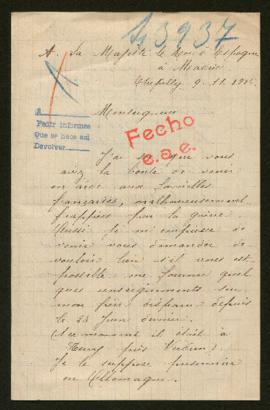 43937
A Sa Majesté le Roi d'Espagne
à Madrid
9.11.19
Monseigneur
A
Pedir informes
Que se hace así
Devolver
Fecho
e.a.e.
J'ai su que vous
avez la bonté de venir
en aide aux familles
françaises, malheureusement
frappées par la guerre.
Aussi je m'empresse de
venir vous demander de
vouloir bien s'il vous est
possible me fournir quel
ques renseignements sur
mon frère disparu depuis
le 23 Juin dernier.
A ce moment il était à
Fleury près Verdun
Je le suppose prisonnier
en Allemagne.